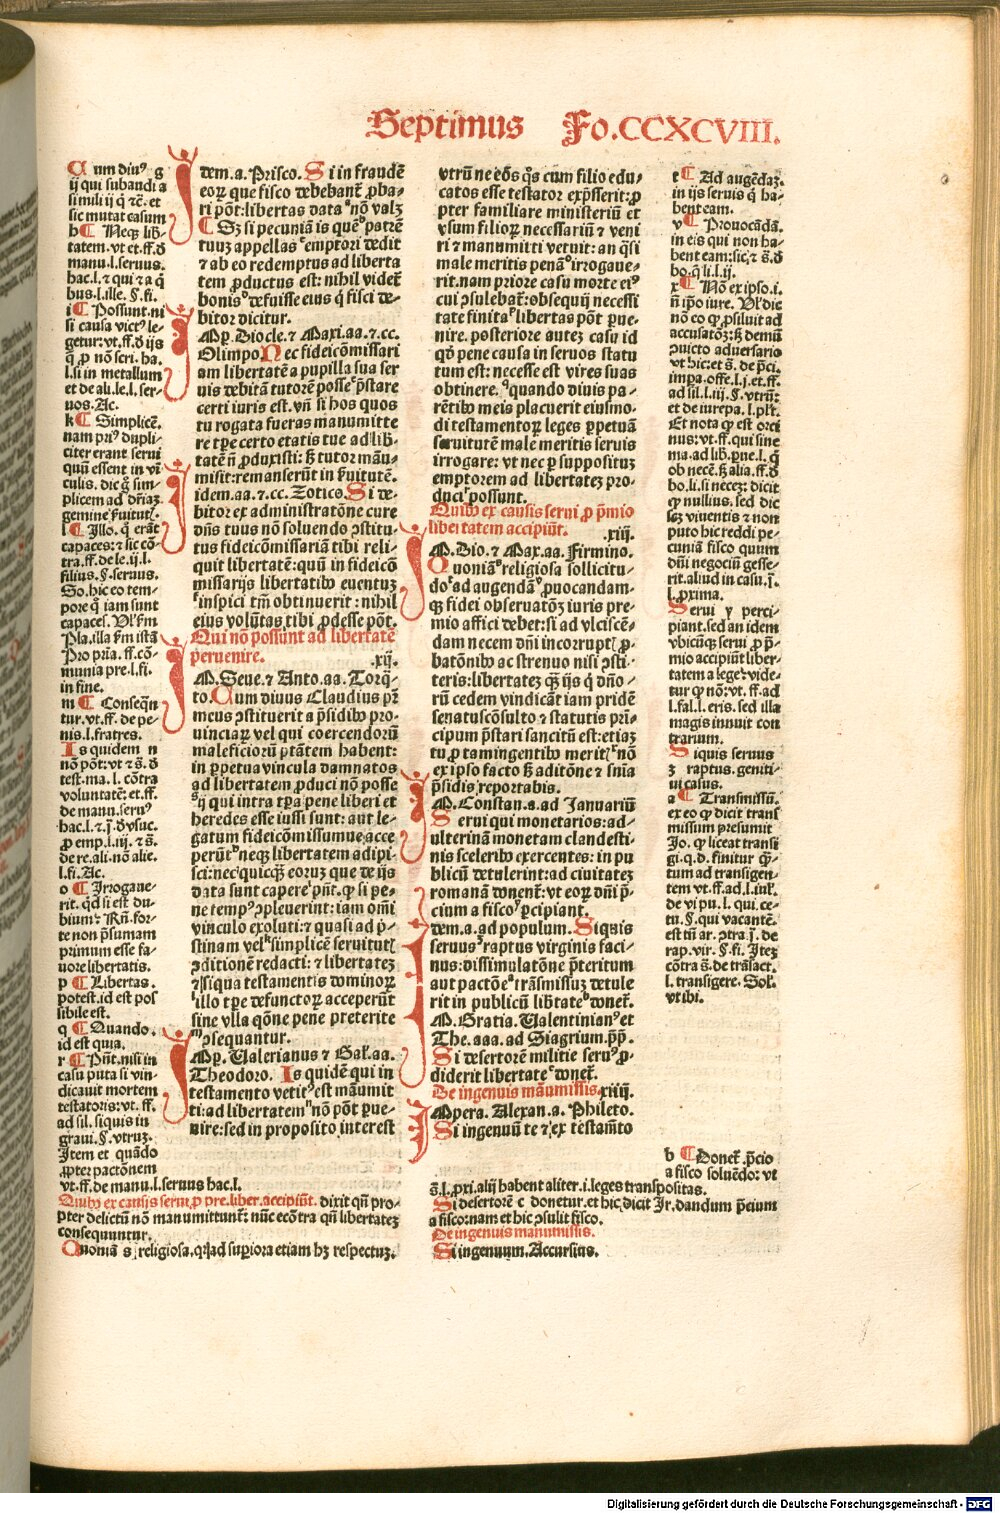 Septimus Fo.CCXCVIII.
Cum diuꝰ g
ij qui subaudi a
simili ij q̄ rē. et
sic mutat casum
h ¶ Neqꝫ lib̄-
tatem. vt et.ff.d̄
manu.l.seruus.
hac.l.⁊ qui ⁊ a q̄
bus.l.ille. §.fi.
i ¶ Possunt. ni
si causa victꝰ le-
getur: vt.ff.d̄ ijs
l.si in metallum
et de ali.le.l.ser-
uos. Ac.
k ¶ Simplicē.
nam priꝰ dupli-
citer erant serui
l ¶ Illo. q̄ erāt
capaces: ⁊ sic cō-
tra.ff.de le.ij.l.
filius. §.seruus.
So. hic eo tem-
pore q̄ iam sunt
munia pre.l.fi.
in fine.
m ¶ Conseqn̄
tur. vt.ff. de pe-
nis.l.fratres.
Is quidem n
nō pōt: vt ⁊ s̄. d̄
test.ma.l. cōtra
voluntatē: et.ff.
de manu. seruꝰ
de re.ali.nō alie.
l.fi. Ac.
o ¶ Irrogaue-
rit. qd̄ si est du-
te non p̄sumam
primum esse fa-
uore libertatis.
p ¶ Libertas.
potest. id est pos
sibile est.
q ¶ Quando.
id est quia.
r ¶ Pn̄t. nisi in
casu puta si vin-
dicauit mortem
testatoris: vt.ff.
ad sil. siquis in
graui. §. vtruꝫ.
Item et quādo
ꝓpter pactōnem
vt.ff.de manu.l.seruus hac.l.
Quibꝰ ex causis serui ꝓ pre.liber.accipiūt. dixit qn̄ pro-
pter delictū nō manumittunt᷑: nūc ecōtra qn̄ libertateꝫ
consequuntur.
Quoniā s religiosa. qꝛ ad supiora etiam hꝫ respectuꝫ.
Idem.a. Prisco. Si in fraudē
eoꝝ que fisco debebant᷑ ꝓba-
ri pōt: libertas data nō valꝫ
¶ Sꝫ si pecuniā is quē patrē
tuuꝫ appellas emptori dedit
⁊ ab eo redemptus ad liberta
tem ꝓductus est: nihil videt᷑
bonis defuisse eius q̄ fisci de-
bitor dicitur.
Imp. Diocle.⁊ Maxi.aa.⁊.cc.
Olimpo. Nec fideicōmissari
am libertatē a pupilla sua ser
uis debitā tutorē posse p̄stare
certi iuris est. vn̄ si hos quos
tu rogata fueras manumitte
re tꝑe certo etatis tue ad lib̄-
tatē n̄ ꝓduxisti: sꝫ tutor māu-
misit: remanserūt in ẜuitutē.
Idem.aa.⁊.cc. Zotico. Si de-
bitor ex administratōne cure
dn̄s tuus nō soluendo ꝯstitu-
tus fideicōmissariā tibi reli-
quit libertatē: quū in fideicō
missarijs libertatibꝰ euentuꝫ
inspici tm̄ obtinuerit: nihil
eius volūtas tibi ꝓdesse pōt.
Qui nō possunt ad libertatē
peruenire. .xij.
Imp. Seue.⁊ Anto.aa. Torq̄-
to. Cum diuus Claudius pr̄
meus ꝯstituerit a p̄sidibꝰ pro-
uinciaꝝ vel qui coercendorū
maleficiorū ptātem habent:
in ꝑpetua vincula damnatos
ad libertatem ꝓduci nō posse
ij qui intra tꝑa pene liberi et
heredes esse iussi sunt: aut le-
gatum fideicōmissumue acce
perūt neqꝫ libertatem adipi-
sci: nec quicqꝫ eoruꝫ que de ijs
data sunt capere pn̄t. qꝛ si pe-
ne tempꝰ ꝯpleuerint: iam om̄i
vinculo exoluti: ⁊ quasi ad p̄-
stinam vel simplicē seruitut᷑
ꝯditionē redacti: ⁊ libertateꝫ
⁊ si qua testamentis dominoꝝ
illo tꝑe defunctoꝝ acceperūt
sine vlla qōne pene preterite
ꝯsequantur.
Imp. Valerianus ⁊ Gal᷑.aa.
Theodoro. Is quidē qui in
testamento vetitꝰ est māumit
ti: ad libertatem nō pōt ꝑue-
nire: sed in proposito interest
vtrū ne eōs q̄s cum filio edu-
catos esse testator exp̄sserit: ꝓ
pter familiare ministeriū et
vsum filioꝝ necessariū ⁊ veni
ri ⁊ manumitti vetuit: an q̄si
male meritis penā irrogaue-
rit. nam priore casu morte eiꝰ
cui ꝯsulebat᷑: obsequij necessi
tate finita libertas pōt ꝑue-
nire. posteriore auteꝫ casu id
qd̄ pene causa in seruos statu
tum est: necesse est vires suas
obtinere. quando diuis pa-
rētibꝰ meis placuerit eiusmo-
di testamentoꝝ leges ꝑpetuā
seruitutē male meritis seruis
irrogare: vt nec ꝑ supposituꝫ
emptorem ad libertateꝫ pro-
duci possunt.
Quibꝰ ex causis serui ꝓ p̄mio
libertatem accipiūt. .xiij.
Imp. Dio.⁊ Max.aa. Firmino.
Quoniā religiosa sollicitu-
do ad augendā ꝓuocandam-
qꝫ fidei obseruatōꝫ iuris pre-
mio affici debet: si ad vlciscē-
dam necem dn̄i incorrupt᷑ ꝓ-
batōnibꝰ ac strenuo nisi ꝯsti-
teris: libertateꝫ qꝫ ijs q̄ dn̄o-
rū cedem vindicāt iam pridē
senatuscōsulto ⁊ statutis prī-
cipum p̄stari sancitū est: etiaꝫ
tu ꝓ tam ingentibꝰ merit᷑ nō
ex ipso facto sꝫ aditōne ⁊ sn̄ia
p̄sidis reportabis.
Imp. Constan.a. ad Januariū
Serui qui monetarios: ad-
ulterinā monetam clandesti-
nis sceleribꝰ exercentes: in pu
blicū detulerint: ad ciuitateꝫ
romanā donent᷑: vt eoꝝ dn̄i p̄-
cium a fisco percipiant.
Idem.a. ad populum. Siquis
seruus raptus virginis faci-
nus: dissimulatōne p̄teritum
aut pactōe trāsmissuꝫ detule
rit in publicū lib̄tate donet᷑.
Imp. Gratia. Valentinianꝰ et
The.aaa. ad Siagrium. pp̄.
Si desertorē militie seruꝰ ꝓ-
diderit libertate donet᷑.
De ingenuis māumissis. .xiiij.
Impera. Alexan.a. Phileto.
Si ingenuū te ⁊ ex testam̄to
t ¶ Ad augēdaꝫ.
in ijs seruis q̄ ha-
bent eam.
v ¶ Prouocādā.
in eis qui non ha-
bent eam: sic. ⁊ s̄. d̄
bo. q̄ li.l.ij.
x ¶ Nō ex ipso. i.
n̄ ipō iure. Vl᷑ dic
nō eo qꝛ ꝓsiluit ad
accusatōꝫ: sꝫ demū
ꝯuicto aduersario
vt hic: et s̄. de p̄ci.
impa.offe.l.j. et.ff.
ad sil.l.iij. §. vtrū:
et de iurepa.l.pl᷑t.
Et nota qꝛ est orci
nus: vt.ff. qui sine
ob necē. sꝫ alia.ff.d̄
ho.li.si neceꝫ: dicit
qꝛ nullius. sed dic
seꝫ viuentis ⁊ non
puto hic reddi pe-
cuniā fisco quum
dn̄i negociū gesse-
rit. aliud in casu. j̄.
l.ꝓxima.
Serui y perci-
piant. sed an idem
vbicūqꝫ serui ꝓ p̄-
mio accipiūt liber-
tatem a lege: vide-
tur qꝛ nō: vt.ff.ad
l.fal.l. eris. sed illa
magis innuit con
trarium.
Siquis seruus
z raptus. geniti-
ui casus.
a ¶ Transmissū.
ex eo qꝛ dicit trans
missum presumit
Jo. qꝛ liceat transi
gi. q. d. finitur q̄-
tum ad transigen-
tem vt.ff.ad.l.iul᷑.
de vi pu.l. qui ce-
tu. §. qui vacantē.
est tn̄ ar. ꝯtra j̄. de
rap.vir. §.fi. Iteꝫ
cōtra s̄. de trāsact.
l. transigere. Sol.
vt ibi.
b ¶ Donet᷑. p̄cio
a fisco soluēdo: vt
s̄.l.ꝓxi. alij habent aliter. i. leges transpositas.
Si desertorē c donetur. et hic dicit Ir. dandum p̄cium
a fisco: nam et hic ꝯsulit fisco.
De ingenuis manumissis.
Si ingenuum. Accursius.
Digitalisierung gefördert durch die Deutsche Forschungsgemeinschaft - DFG